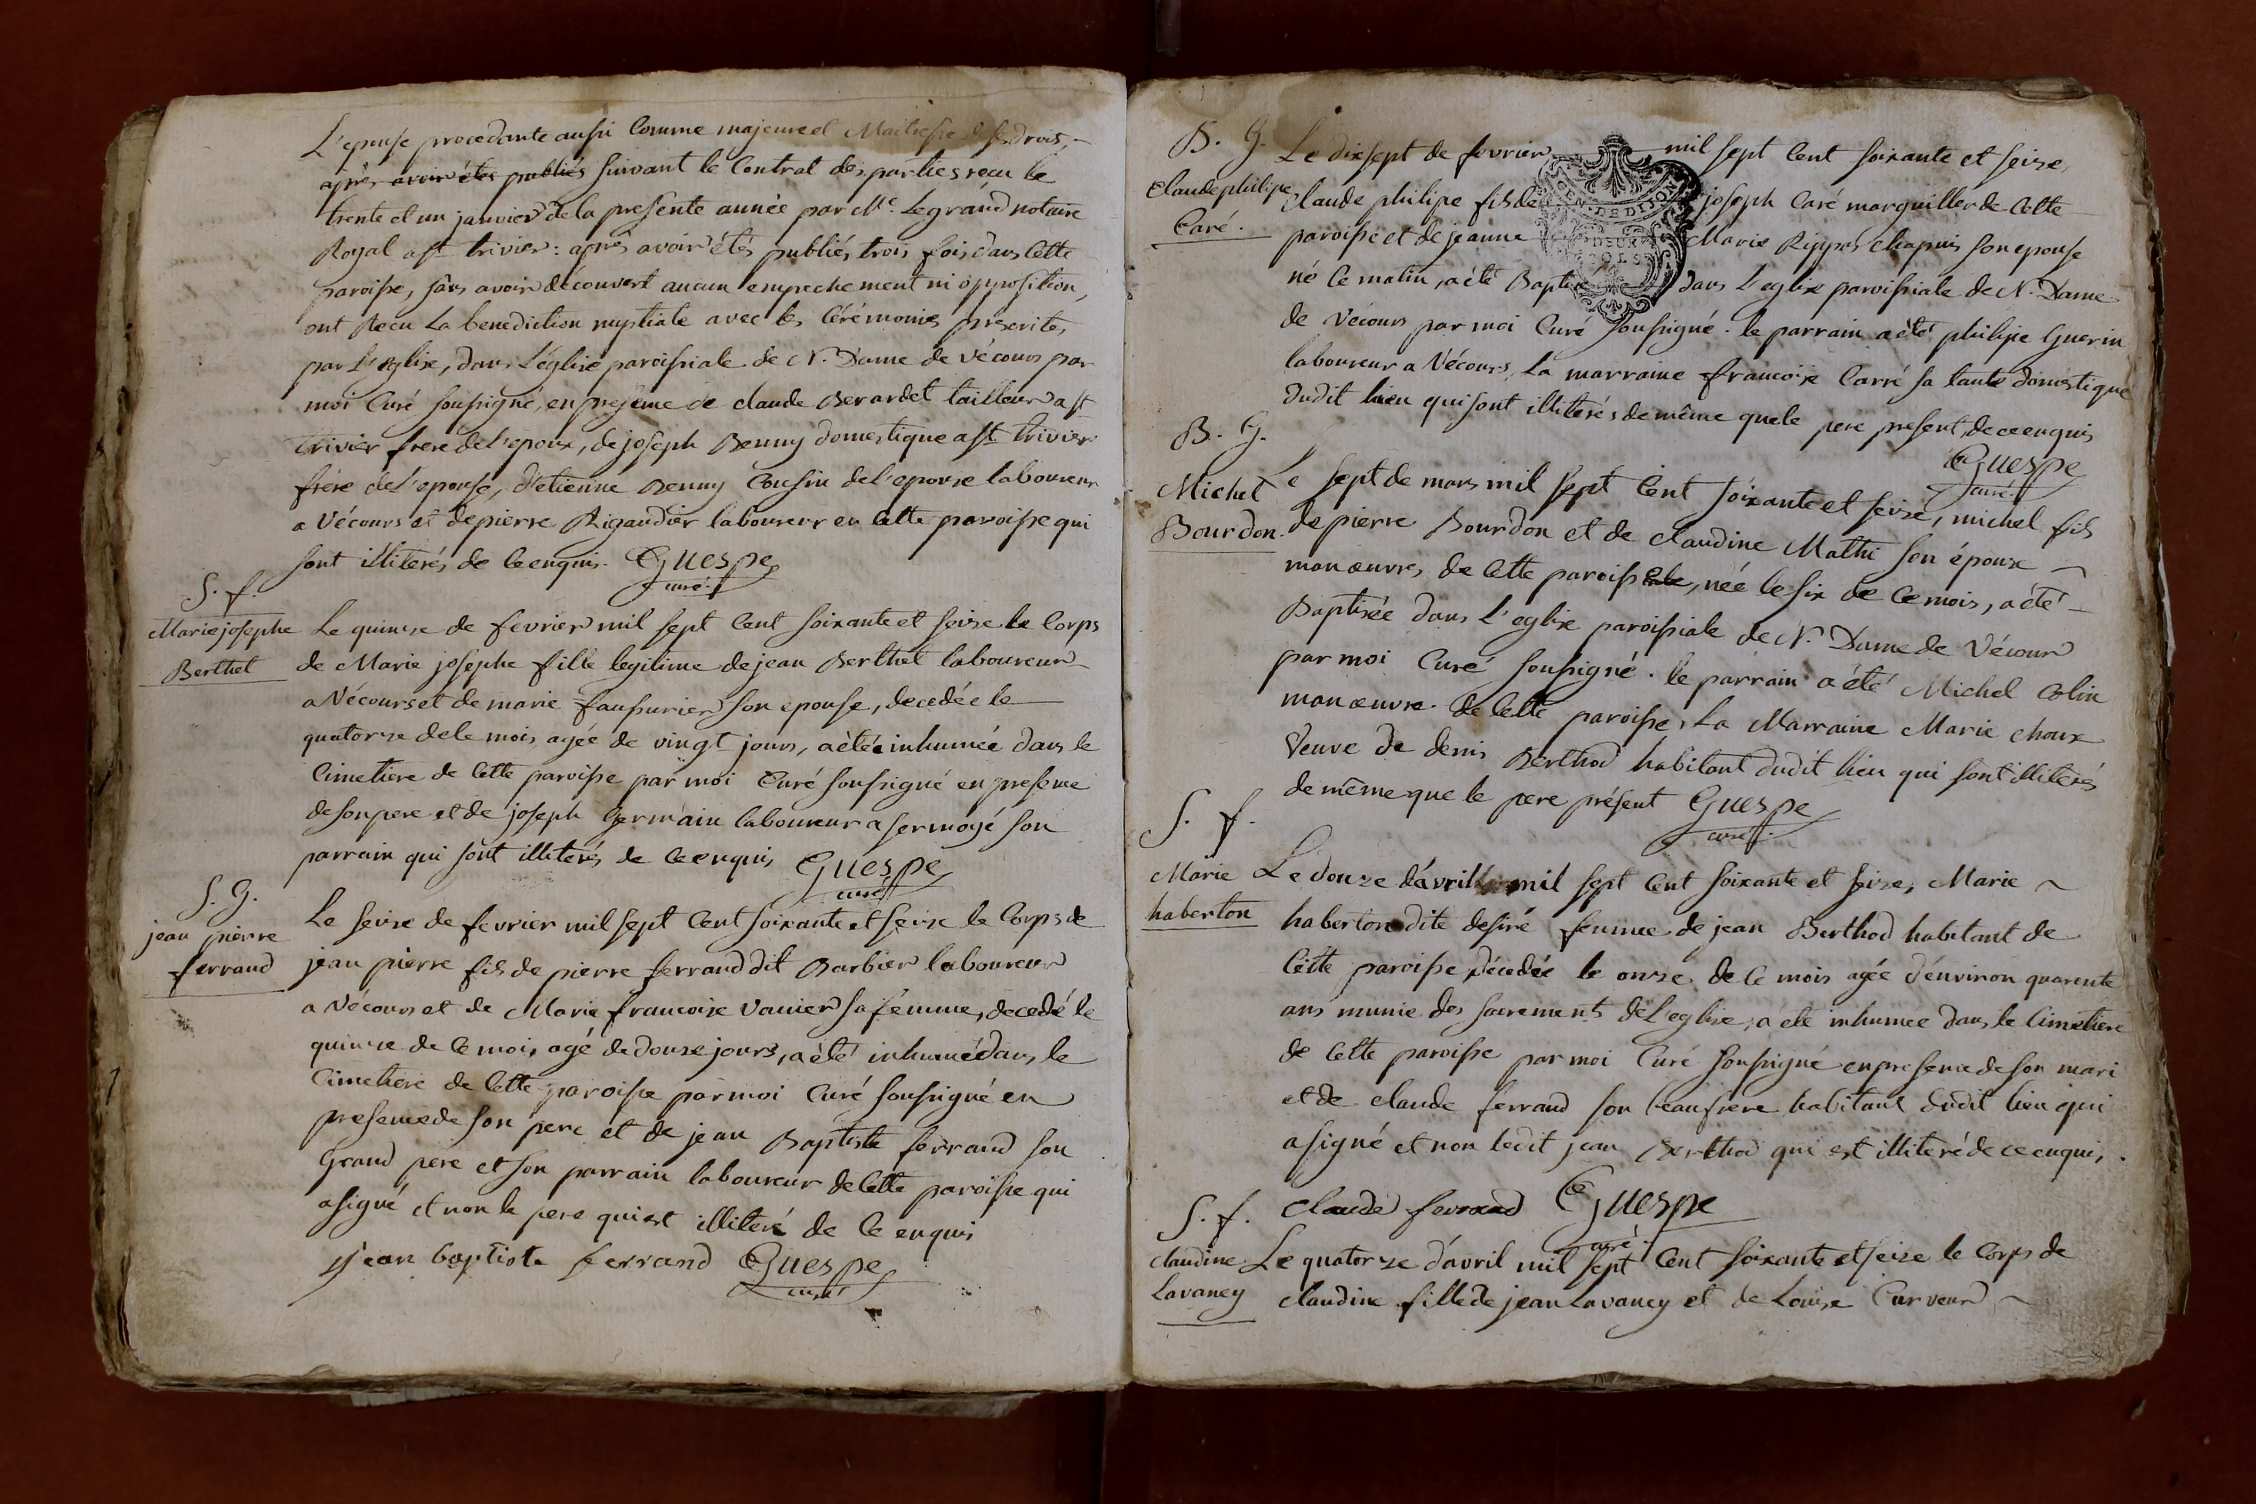 L'epouse procedante aussi Comme majeure et Maitresse de ses Drois,
après avoir étés publiés suivant le Contrat des parties recu le
trente et un janvier de la presente année par Me. Legrand notaire
Royal a st trivier: après avoir étés publiés trois fois dans Cette
paroisse, sans avoir découvert aucun empechement ni opposition,
ont Recu La benediction nuptiale avec les Cérémonies prescrites
par L'eglise, dans L'église paroissiale de N. Dame de Vécours par
moi Curé soussigné, en presence de claude Berardet tailleur a st
trivier frere de l'epoux, de joseph Benny domestique a st trivier
frère de l'epouse, d'etienne Benny Cousin de l'epouse laboureur
a Vécours et de pierre Rigaudier laboureur en Cette paroisse qui
sont illiterés de Ce enquis. Guespe
curé.
S. f.
Marie josephe
Berthet
Le quinze de fevrier mil sept Cent soixante et seize le Corps
de Marie josephe fille legitime de jean Berthet laboureur
a Vécours et de marie faussurier son epouse, decedée le
quatorze de Ce mois agée de vingt jours, a étée inhumée dans le
Cimetiere de Cette paroisse par moi Curé soussigné en presence
de son pere et de joseph Germain laboureur a sermoyé son
parrain qui sont illiterés de Ce enquis Guespe
curé
S. G.
jean pierre
ferrand
Le seize de fevrier mil sept Cent soixante et seize le Corps de
jean pierre fils de pierre ferrand dit Barbier laboureur
a Vécours et de Marie francoise Vanier sa femme, decedé le
quinze de Ce mois agé de douze jours, a été inhumé dans le
Cimetiere de Cette paroisse par moi Curé soussigné en
presence de son pere et de jean Baptiste ferrand son
Grand pere et son parrain laboureur de Cette paroisse qui
a signé et non le pere qui est illiteré de Ce enquis
jean baptiste ferrand Guespe
curé
B. G.
Claude philipe
Caré.
Le dixsept de fevrier mil sept Cent soixante et seize,
claude philipe fils de joseph Caré marguiller de Cette
paroisse et de jeanne Marie Rippes Chapuis son epouse
né Ce matin, a été Baptisé dans L'eglise paroissiale de N. Dame
de Vécours par moi Curé soussigné. le parrain a été philipe Guerin
laboureur a Vécours, La marraine francoise Carré sa tante domestique
dudit lieu qui sont illiterés de même que le pere present, de ce enquis
Guespe
curé
GEN. DE DIJON
DEUX
SOLS
B. G.
Michel
Bourdon.
Le sept de mars mil sept Cent soixante et seize, michel fils
de pierre Bourdon et de claudine Mathi son épouse
manœuvres de Cette paroisse, née le six de Ce mois, a été
Baptisée dans L'eglise paroissiale de N. Dame de Vécour
par moi Curé soussigné. le parrain a été Michel Colin
manœuvre de Cette paroisse, La Marraine Marie Choux
Veuve de denis Berthod habitant dudit lieu qui sont illiterés
de même que le pere présent Guespe
curé.
S. f.
Marie
haberton
Le douze d'avril mil sept Cent soixante et seize, Marie
haberton dite desiré femme de jean Berthod habitant de
Cette paroisse, décedée le onze de Ce mois agée d'environ quarente
ans munie des sacrements de L'eglise, a été inhumée dans le Cimetiere
de Cette paroisse par moi Curé soussigné en presence de son mari
et de claude ferrand son beaufrere habitant dudit lieu qui
a signé et non ledit jean Berthod qui est illiteré de ce enquis.
Claude ferrand Guespe
curé.
S. f.
claudine
Lavancy
Le quatorze d'avril mil sept Cent soixante et seize le Corps de
claudine fille de jean Lavancy et de Louise Curveur